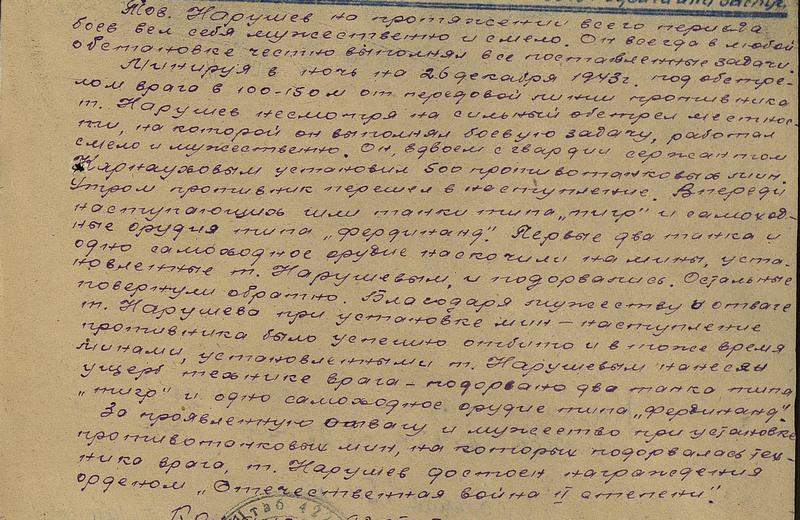 Тов. Нарушев на протяжении всего периода
боев вел себя мужественно и смело. Он всегда в любой
обстановке честно выполнял все поставленные задачи.
Минируя в ночь на 26 декабря 1943г. под обстре-
лом врага в 100-150м от передовой линии противника
т. Нарушев несмотря на сильный обстрел местнос-
ти, на которой он выполнял боевую задачу, работал
смело и мужественно. Он, вдвоем с гвардии сержантом
Карнауховым установил 500 противотанковых мин.
Утром противник перешел в наступление. Впереди
наступающих шли танки типа „тигр" и самоход-
ные орудия типа „фердинанд". Первые два танка и
одно самоходное орудие наскочили на мины, уста-
новленные т. Нарушевым, и подорвались. Остальные
повернули обратно. Благодаря мужеству и отваге
т. Нарушева при установке мин – наступление
противника было успешно отбито и в тоже время
минами, установленными т. Нарушевым нанесен
ущерб технике врага – подорвано два танка типа
„тигр" и одно самоходное орудие типа „фердинанд"
За проявленную отвагу и мужество при установке
противотанковых мин, на которых подорвалась тех-
ника врага, т. Нарушев достоен награждения
орденом „Отечественная война II степени".
штаб 42